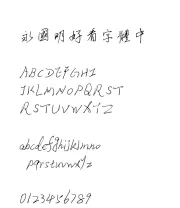 永國明好看字體中
ABCDEFGHI
JKLMNOPQRST
RSTUVWXYZ
abcdefghijklmno
pqrstuvwxyz
0123456789